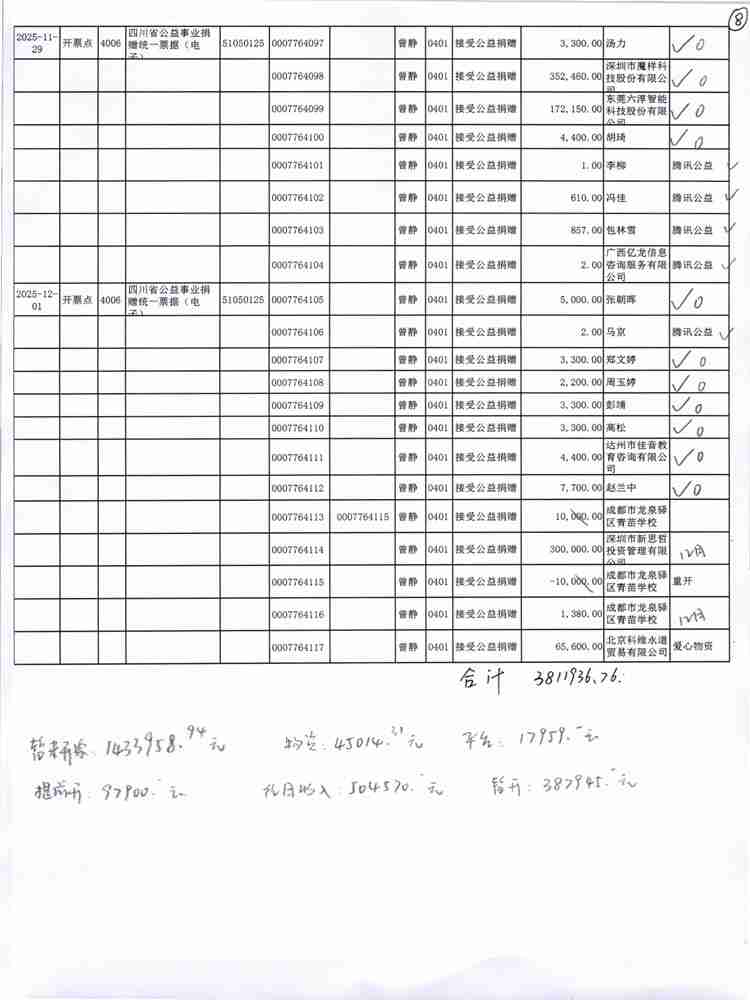 ⑧
2025-11-29 开票点 4006 四川省公益事业捐赠统一票据（电子） 51050125 0007764097 曾静 0401 接受公益捐赠 3,300.00 汤力 ✓0
0007764098 曾静 0401 接受公益捐赠 352,460.00 深圳市魔样科技股份有限公司 ✓0
0007764099 曾静 0401 接受公益捐赠 172,150.00 东莞六淳智能科技股份有限公司 ✓0
0007764100 曾静 0401 接受公益捐赠 4,400.00 胡琦 ✓0
0007764101 曾静 0401 接受公益捐赠 1.00 李柳 腾讯公益 ✓
0007764102 曾静 0401 接受公益捐赠 610.00 冯佳 腾讯公益 ✓
0007764103 曾静 0401 接受公益捐赠 857.00 包林雪 腾讯公益 ✓
0007764104 曾静 0401 接受公益捐赠 2.00 广西亿龙信息咨询服务有限公司 腾讯公益 ✓
2025-12-01 开票点 4006 四川省公益事业捐赠统一票据（电子） 51050125 0007764105 曾静 0401 接受公益捐赠 5,000.00 张朝晖 ✓0
0007764106 曾静 0401 接受公益捐赠 2.00 马京 腾讯公益 ✓
0007764107 曾静 0401 接受公益捐赠 3,300.00 郑文婷 ✓0
0007764108 曾静 0401 接受公益捐赠 2,200.00 周玉婷 ✓0
0007764109 曾静 0401 接受公益捐赠 3,300.00 彭靖 ✓0
0007764110 曾静 0401 接受公益捐赠 3,300.00 高松 ✓0
0007764111 曾静 0401 接受公益捐赠 4,400.00 达州市佳音教育咨询有限公司 ✓0
0007764112 曾静 0401 接受公益捐赠 7,700.00 赵兰中 ✓0
0007764113 0007764115 曾静 0401 接受公益捐赠 10,000.00 成都市龙泉驿区青苗学校
0007764114 曾静 0401 接受公益捐赠 300,000.00 深圳市新思哲投资管理有限公司 12月
0007764115 曾静 0401 接受公益捐赠 -10,000.00 成都市龙泉驿区青苗学校 重开
0007764116 曾静 0401 接受公益捐赠 1,380.00 成都市龙泉驿区青苗学校 12月
0007764117 曾静 0401 接受公益捐赠 65,600.00 北京科维永道贸易有限公司 爱心物资
合计 3811936.76.
暂未开票：1433958.94元 物资：45014.31元 平台：17959.-元
提前开：97900.-元 12月收入：504570.-元 暂开：387945.-元